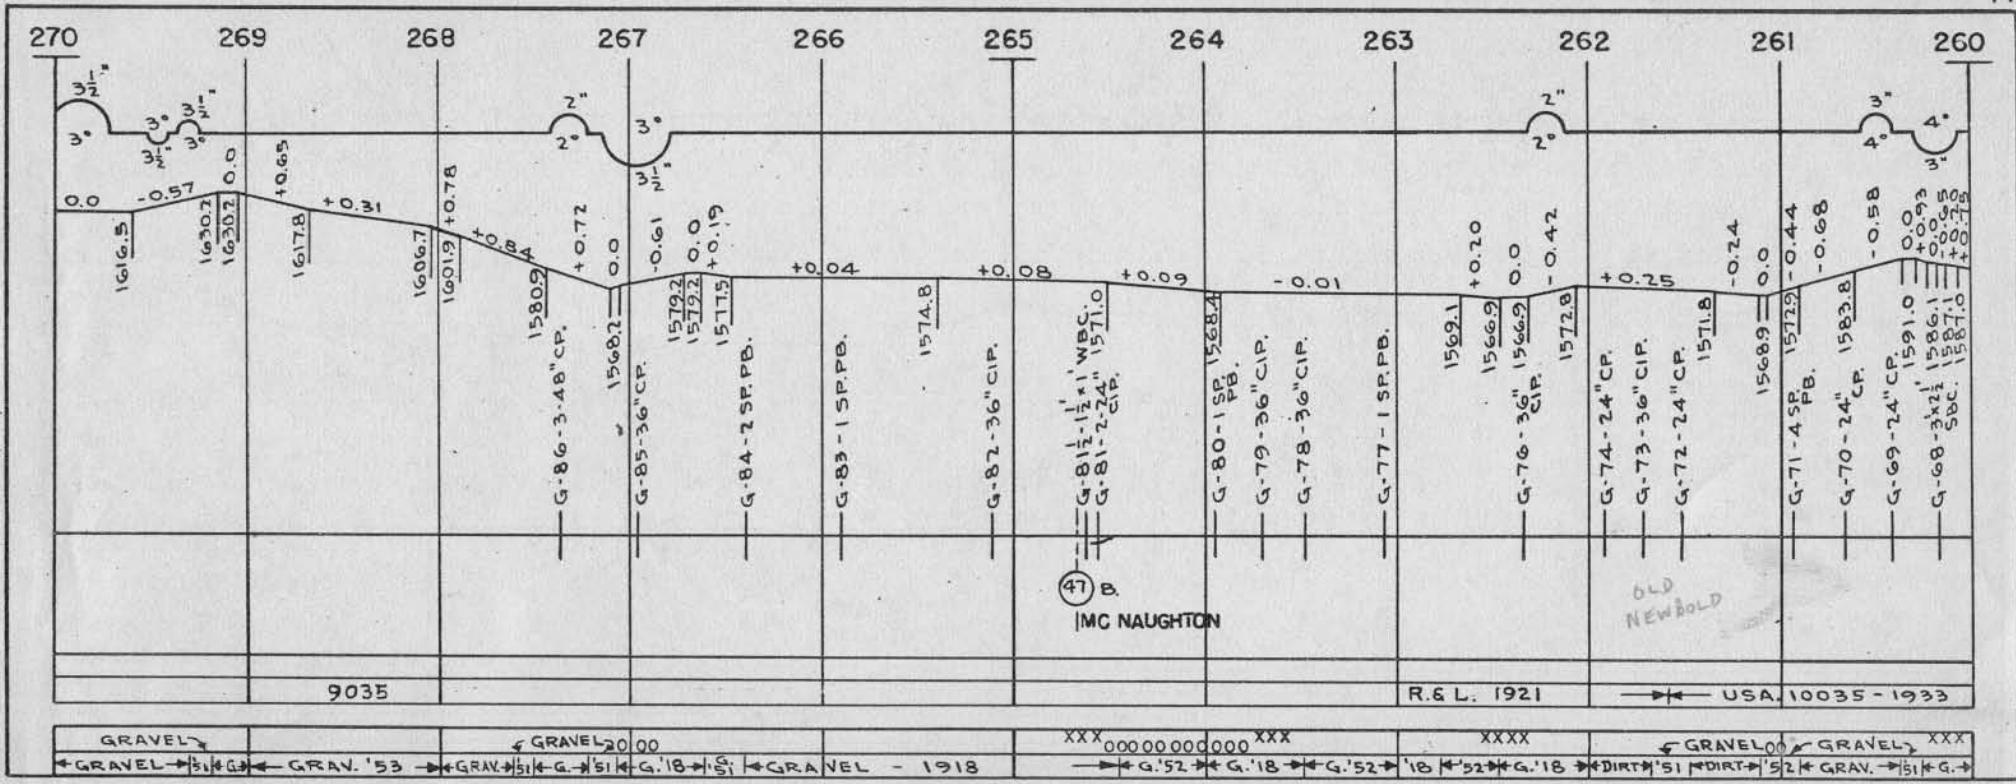 270 269 268 267 266 265 264 263 262 261 260
3½" 3° 3½" 2" 3° 2" 3" 4°
3° 3½" 3° 2° 3½" 2° 4° 3"
0.0 -0.57 0.0 +0.65 +0.31 +0.78 +0.84 +0.72 0.0 -0.61 0.0 +0.19 +0.04 +0.08 +0.09 -0.01 +0.20 0.0 -0.42 +0.25 -0.24 0.0 -0.44 -0.68 -0.58 0.0 +0.93 0.0 -0.65 +0.20 +0.75
1616.5 1630.2 1630.2 1617.8 1606.7 1601.9 1580.9 1568.2 1579.2 1579.2 1577.5 1574.8 1571.0 1568.4 1569.1 1566.9 1566.9 1572.8 1571.8 1568.9 1572.9 1583.8 1591.0 1586.1 1587.1 1587.0
G-86-3-48" CP.
G-85-36" CP.
G-84-2 SP. PB.
G-83-1 SP. PB.
G-82-36" CIP.
G-81½-1½'x1' WBC.
G-81-2-24" CIP.
G-80-1 SP. PB.
G-79-36" CIP.
G-78-36" CIP.
G-77-1 SP. PB.
G-76-36" CIP.
G-74-24" CP.
G-73-36" CIP.
G-72-24" CP.
G-71-4 SP. PB.
G-70-24" CP.
G-69-24" CP.
G-68-3'x2½' SBC.
47 B.
MC NAUGHTON
OLD
NEWBOLD
9035 R.& L. 1921 USA. 10035-1933
GRAVEL GRAVEL 00 00 XXX 000000000000 XXX XXXX GRAVEL 00 GRAVEL XXX
GRAVEL '51 G. GRAV. '53 GRAV. '51 G. '51 G.'18 G. '51 GRAVEL - 1918 G.'52 G.'18 G.'52 '18 '52 G.'18 DIRT '51 DIRT '52 GRAV. '51 G.